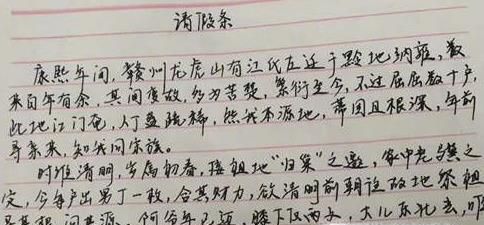 请假条
康熙年间，赣州龙虎山有江氏左迁于黔地纳雍，数
来百年有余，其间变故，多为苦楚，繁衍至今，不过屈屈数十户，
此地江门奄，人丁益疏稀，然我本源地，蒂固且根深，年前
寻亲来，知我同宗族。
时维清明，岁属初春，接祖地“归巢”之邀，家中老骥之
定，今每户出男丁一枚，合其财力，欲清明前朝这故地祭祖
寻其根，问其源，何爷年已迈，膝下仅两女，大儿东北去，